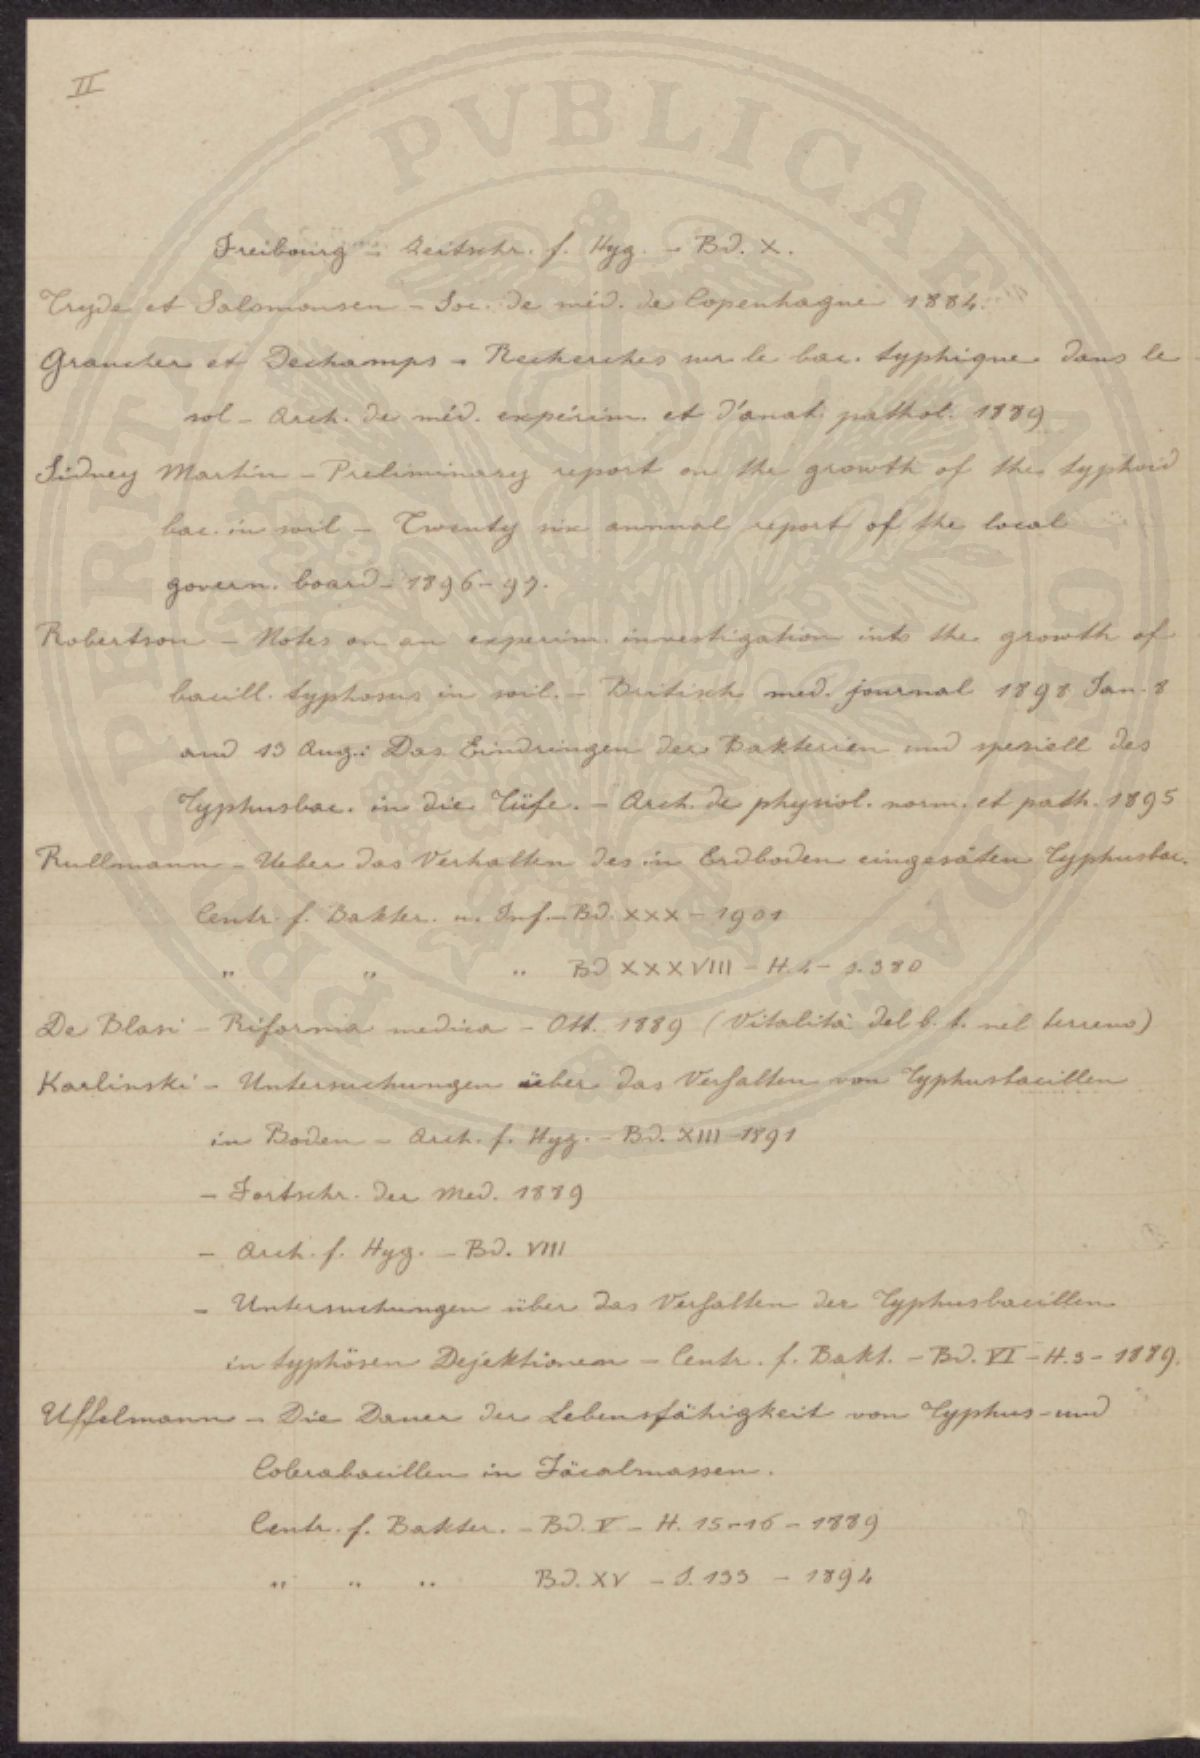 II
Freibourg - Zeitschr. f. Hyg. - Bd. X.
Tryde et Salomonsen - Soc. de méd. de Copenhague 1884.
Grancher et Dechamps - Recherches sur le bac. typhique dans le
sol - Arch. de méd. expérim. et d'anat. pathol. 1889
Sidney Martin - Preliminary report on the growth of the typhoid
bac. in soil - Twenty six annual report of the local
govern. board - 1896-97.
Robertson - Notes on an experim. investigation into the growth of
bacill. typhosus in soil. - Britisch med. journal 1898 Jan. 8
and 13 Aug.: Das Eindringen der Bakterien und speziell des
Typhusbac. in die Tüfe. - Arch. de physiol. norm. et path. 1895
Rullmann - Ueber das Verhalten des in Erdboden eingesäten Typhusbac.
Centr. f. Bakter. u. Inf. - Bd. XXX - 1901
" " " Bd XXXVIII - H. 4 - S. 380
De Blasi - Riforma medica - Ott. 1889 (Vitalità del b. t. nel terreno)
Karlinski - Untersuchungen über das Verfalten von Typhusbacillen
in Boden - Arch. f. Hyg. - Bd. XIII - 1891
- Fortschr. der Med. 1889
- Arch. f. Hyg. - Bd. VIII
- Untersuchungen über das Verfalten der Typhusbacillen
in typhösen Dejektionen - Centr. f. Bakt. - Bd. VI - H. 3 - 1889.
Uffelmann - Die Dauer der Lebensfähigkeit von Typhus- und
Colerabacillen in Fäcalmassen.
Centr. f. Bakter. - Bd. V - H. 15-16 - 1889
" " " Bd. XV - S. 133 - 1894
PROSPERITATI PVBLICAE AVGENDAE